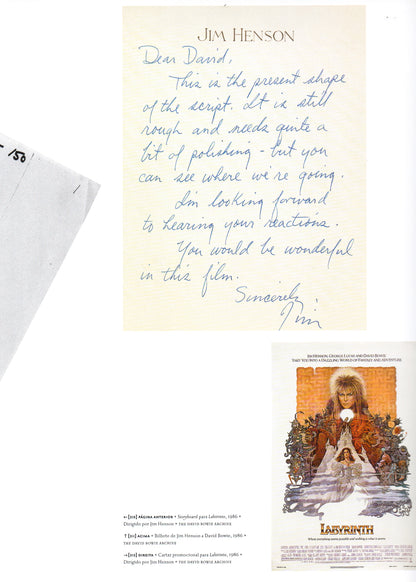 - 150
JIM HENSON
Dear David,
This is the present shape
of the script. It is still
rough and needs quite a
bit of polishing - but you
can see where we're going.
I'm looking forward
to hearing your reactions.
You would be wonderful
in this film.
Sincerely,
Jim
JIM HENSON, GEORGE LUCAS AND DAVID BOWIE
TAKE YOU INTO A DAZZLING WORLD OF FANTASY AND ADVENTURE.
LABYRINTH
Where everything seems possible and nothing is what it seems.
PÁGINA ANTERIOR • Storyboard para Labirinto, 1986 •
Dirigido por Jim Henson • THE DAVID BOWIE ARCHIVE
ACIMA • Bilhete de Jim Henson a David Bowie, 1986 •
THE DAVID BOWIE ARCHIVE
DIREITA • Cartaz promocional para Labirinto, 1986 •
Dirigido por Jim Henson • THE DAVID BOWIE ARCHIVE